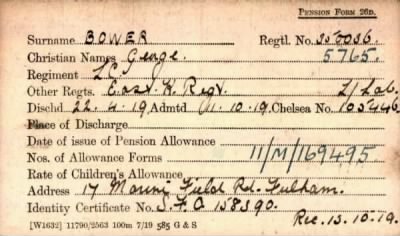 PENSION FORM 26D.
Surname BOWER Regtl. No. 353036.
Christian Names George. 5765.
Regiment L.C.
Other Regts. East. K. Regt. L/Lab.
Dischd 22.4.19 Admtd 1.10.19. Chelsea No. 105446
Place of Discharge
Date of issue of Pension Allowance
Nos. of Allowance Forms 11/M/169495
Rate of Children's Allowance
Address 17 Field Rd. Fulham.
Identity Certificate No. 158390.
Rec. 13.10.19.
[W1632] 11790/2563 100m 7/19 585 G & S